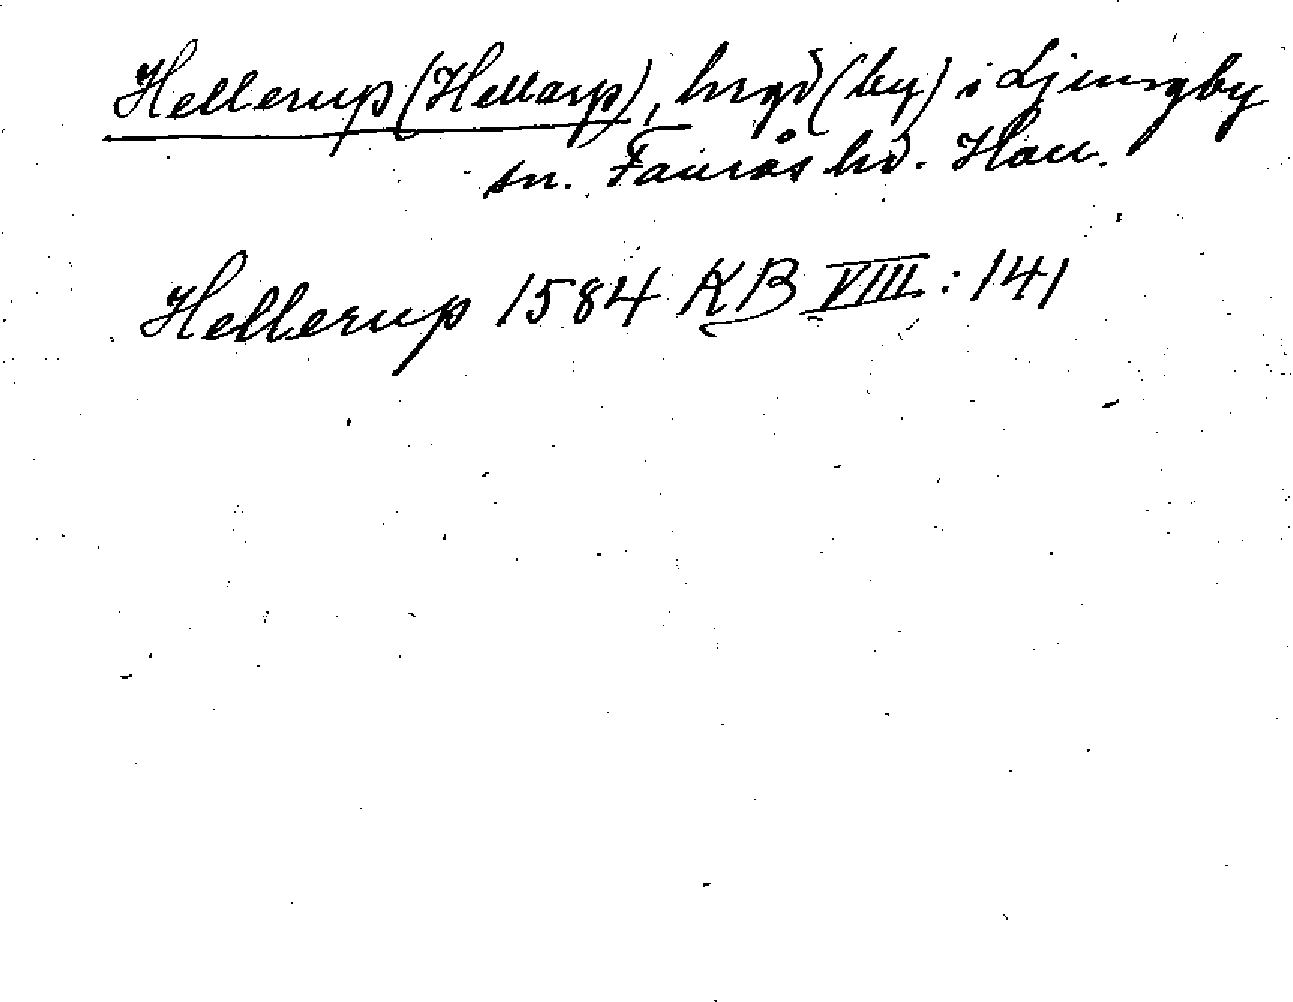 Hellerup (Hellarp), hrgd (by) i Ljungby
sn. Faurås hd. Hall.
Hellerup 1584 KB VIII : 141